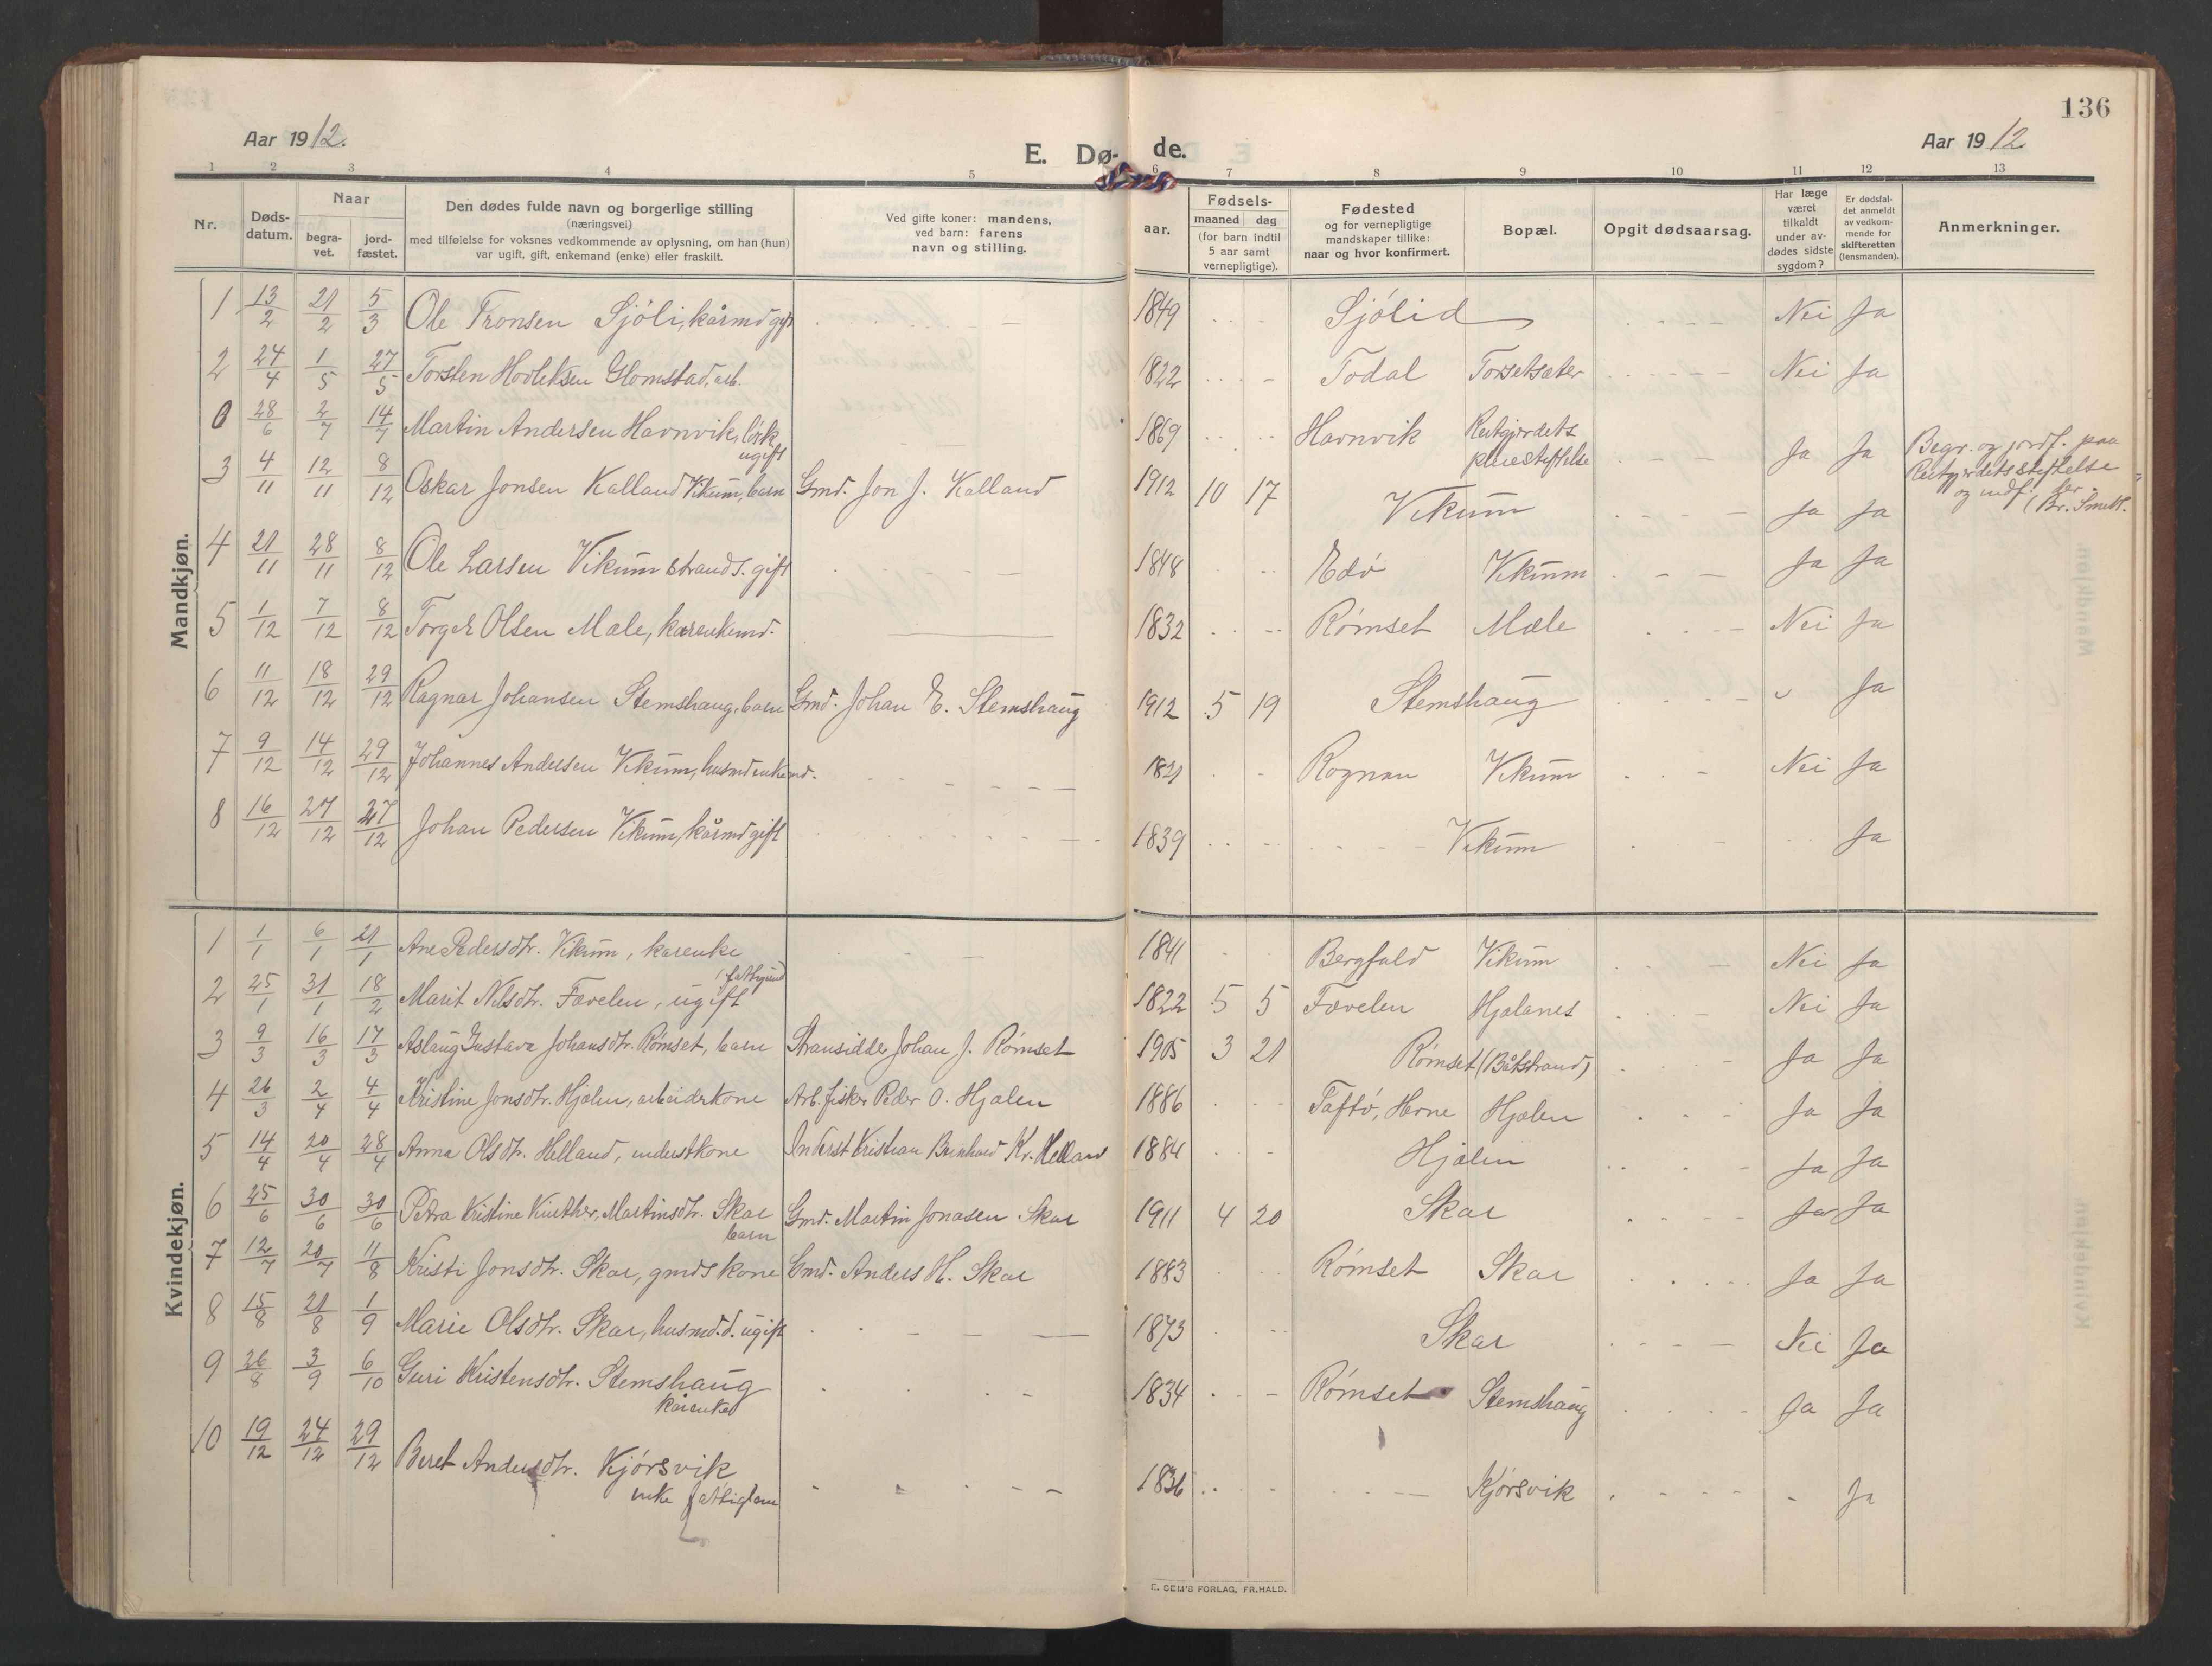 136
Aar 1912.
E. Dø-
de.
Aar 1912.
1 2 3 4 5 6 7 8 9 10 11 12 13
Nr.
Døds-
datum.
Naar
begra-
vet.
jord-
fæstet.
Den dødes fulde navn og borgerlige stilling
(næringsvei)
med tilføielse for voksnes vedkommende av oplysning, om han (hun)
var ugift, gift, enkemand (enke) eller fraskilt.
Ved gifte koner: mandens,
ved barn: farens
navn og stilling.
Fødsels-
aar.
maaned dag
(for barn indtil
5 aar samt
vernepligtige).
Fødested
og for vernepligtige
mandskaper tillike:
naar og hvor konfirmert.
Bopæl.
Opgit dødsaarsag.
Har læge
været
tilkaldt
under av-
dødes sidste
sygdom?
Er dødsfal-
det anmeldt
av vedkom-
mende for
skifteretten
(lensmanden).
Anmerkninger.
Mandkjøn.
1 13/2 21/2 5/3 Ole Tronsen Sjöli, kårmd gift 1849 Sjölid Nei Ja
2 24/4 1/5 27/5 Torsten Glomstad, arb. 1822 Todal Torsetsæter Nei Ja
0 28/6 2/7 14/7 Martin Andersen Havnvik, 1869 Havnvik Reitgjerdets Ja Ja Begr. og jordf. paa
ugift pleiestiftelse Reitgjerdets stiftelse
3 4/11 12/11 8/12 Oskar Jonsen Kalland Vikum, barn Gmd. Jon J. Kalland 1912 10 17 Vikum Ja Ja og indf. her (Br. Smett.
4 21/11 28/11 8/12 Ole Larsen Vikum strands. gift 1848 Edö Vikum Ja Ja
5 1/12 7/12 8/12 Torger Olsen Mæle, kårenkemd. 1832 Rømset Mæle Nei Ja
6 11/12 18/12 29/12 Ragnar Johansen Stemshaug, barn Gmd. Johan E. Stemshaug 1912 5 19 Stemshaug Ja
7 9/12 14/12 29/12 Johannes Andersen Vikum, husmd enkemd. 1821 Rognan Vikum Nei Ja
8 16/12 27/12 27/12 Johan Pedersen Vikum, kårmd gift 1839 Vikum Ja
Kvindekjøn.
1 1/1 6/1 21/1 Ane Pedersdtr. Vikum, kårenke 1841 Bergfald Vikum Nei Ja
2 25/1 31/1 18/2 Marit Nilsdtr. Fævelen, ugift 1822 5 5 Fævelen Hjælanes Nei Ja
3 9/3 16/3 17/3 Aslaug Gustava Johansdtr. Rømset, barn Stransidder Johan J. Rømset 1905 3 21 Rømset (Båtstrand) Ja Ja
4 26/3 2/4 4/4 Kristine Jonsdtr. Hjælen, arbeiderkone Arb. fisker Peder O. Hjælen 1886 Taftö, Herne Hjælen Ja Ja
5 14/4 20/4 28/4 Anna Olsdtr. Helland, inderstkone Inderst Kristian Bernhard Kr. Helland 1884 Hjælen Ja Ja
6 25/6 30/6 30/6 Petra Kristine Martinsdtr. Skar Gmd. Martin Jonasen Skar 1911 4 20 Skar Ja Ja
barn
7 12/7 20/7 11/8 Kristi Jonsdtr. Skar, gmds kone Gmd. Anders H. Skar 1883 Rømset Skar Ja Ja
8 15/8 21/8 1/9 Marie Olsdtr. Skar, husmd.d. ugift 1873 Skar Nei Ja
9 26/8 3/9 6/10 Guri Kristensdtr. Stemshaug 1834 Rømset Stemshaug Ja Ja
kårenke
10 19/12 24/12 29/12 Beret Andersdtr. Kjörsvik 1836 Kjörsvik Ja
enke fattiglem
E. SEM'S FORLAG, FR.HALD.